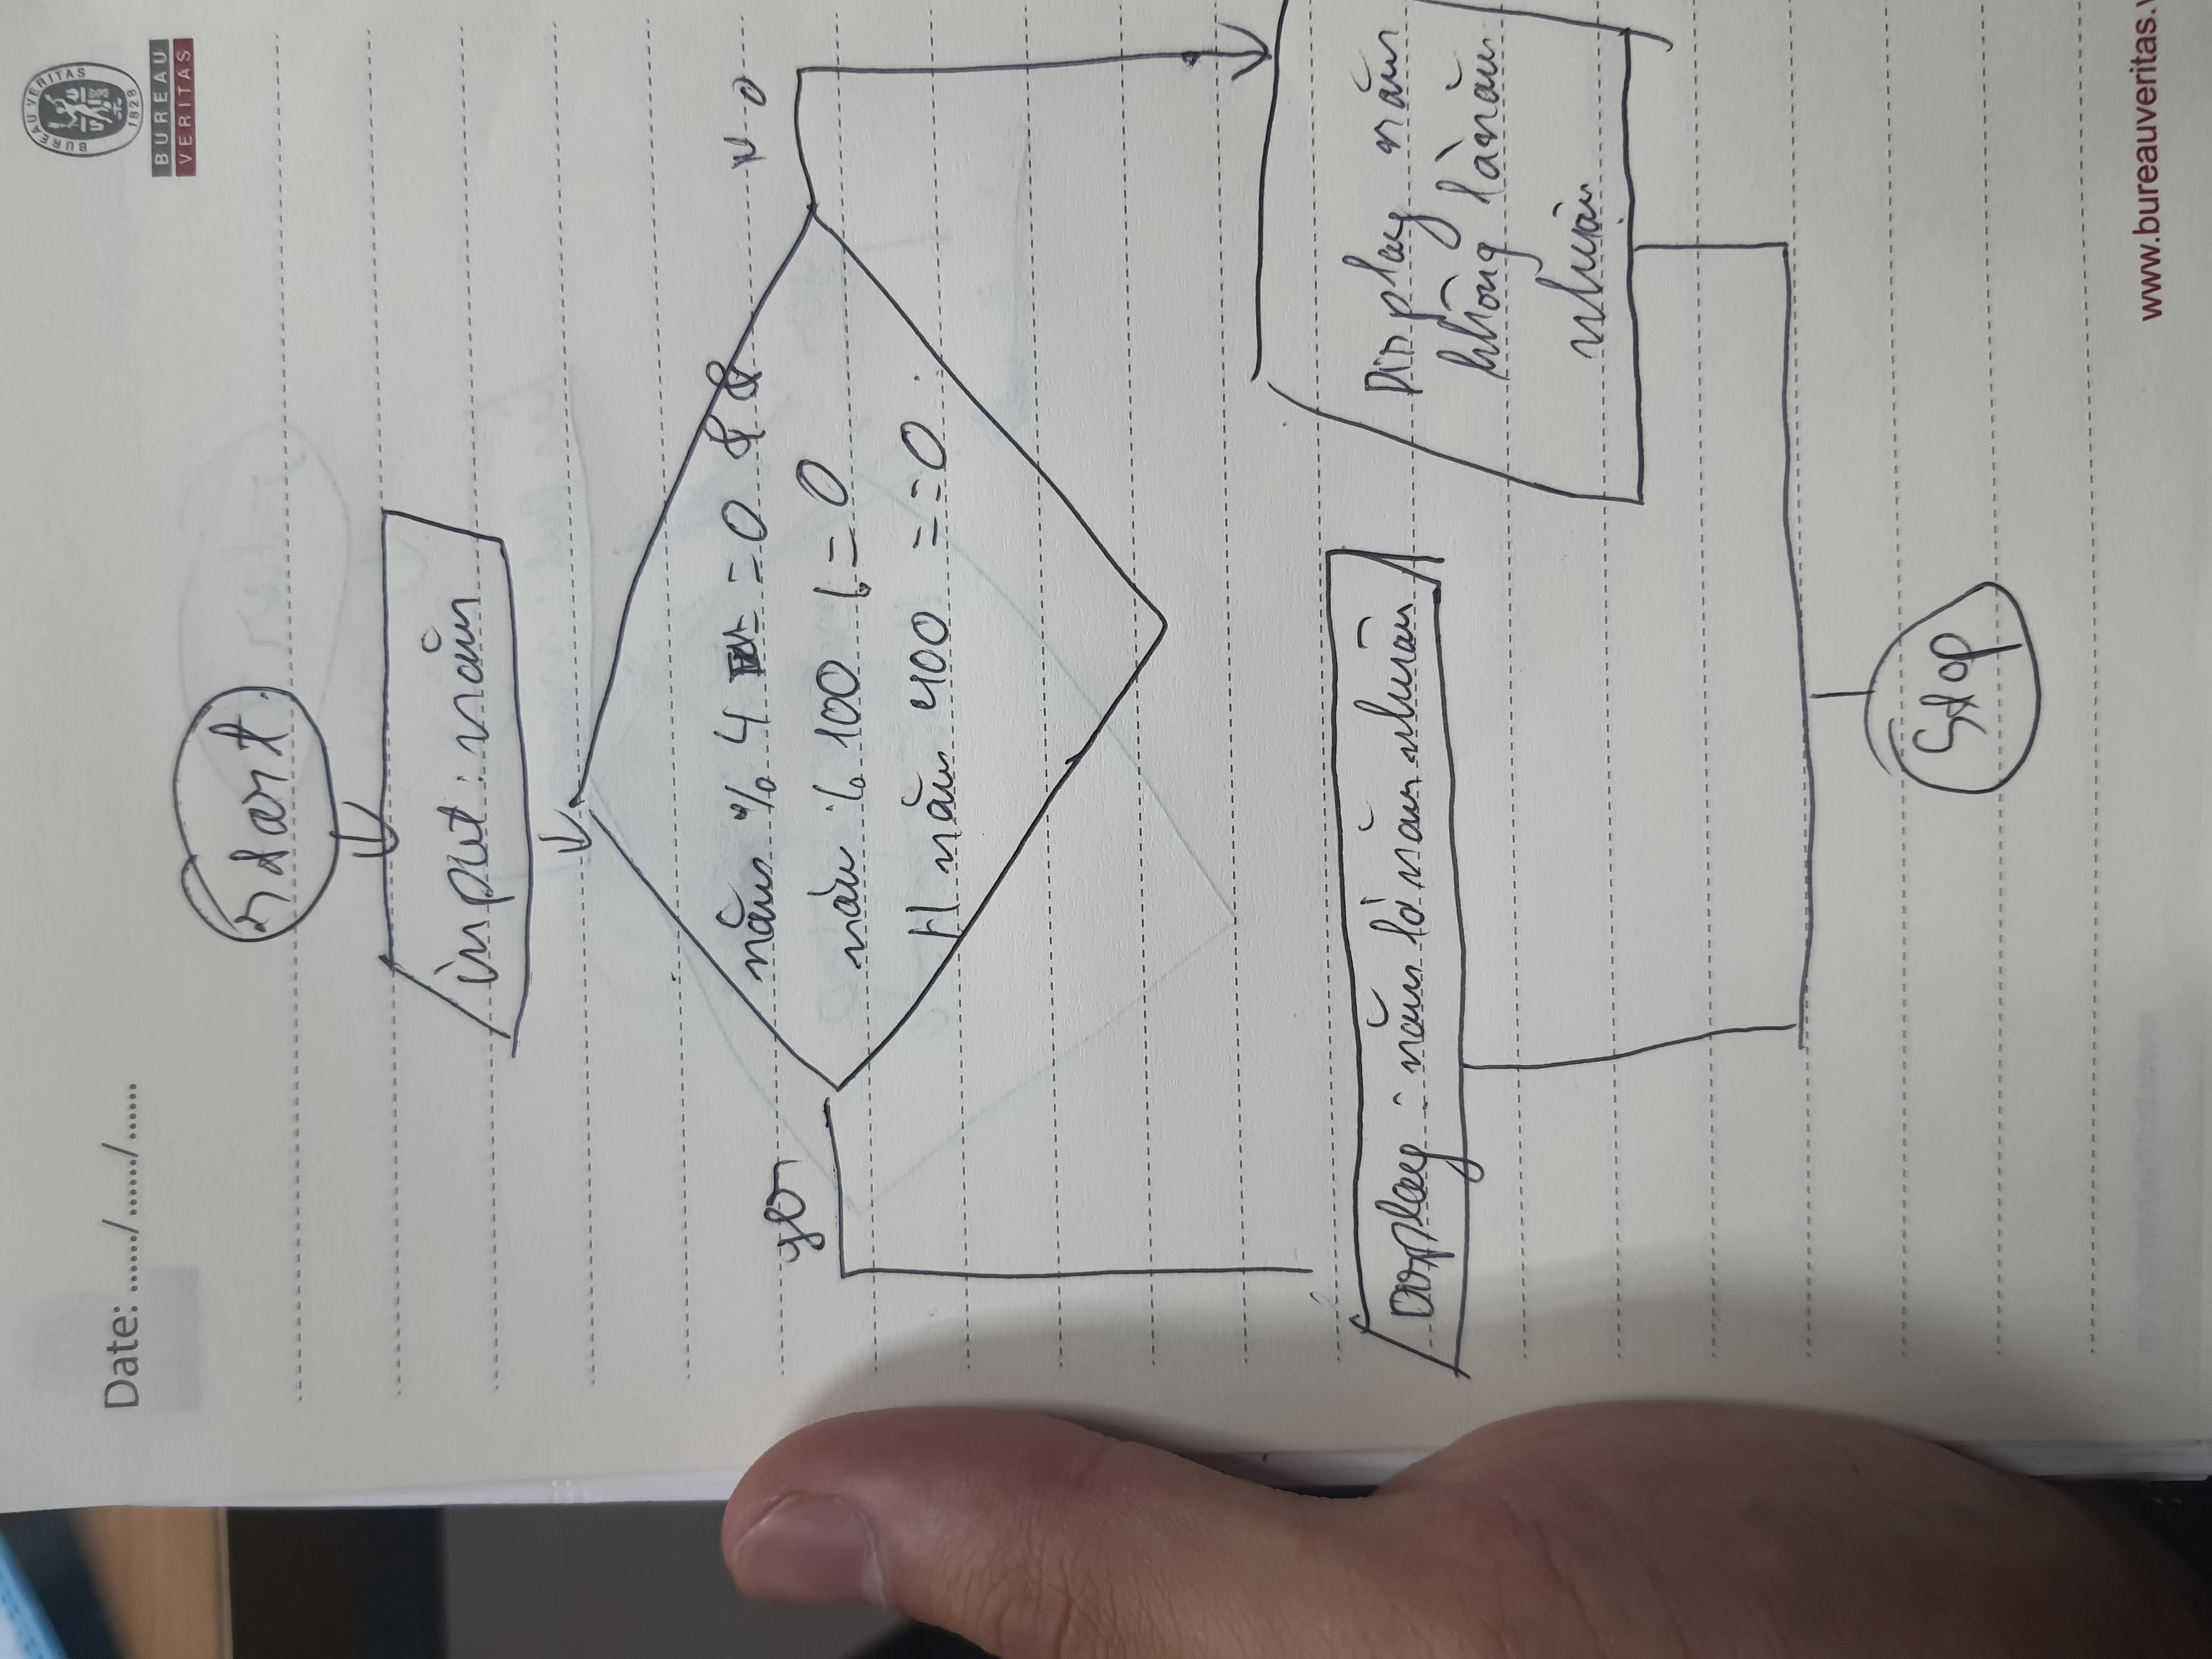 Date: ....../....../......
BUREAU VERITAS
1828
BUREAU
VERITAS
Start
input : năm
năm % 4 = = 0 &&
năm % 100 != 0
|| năm 400 = = 0
yes
No
Display : năm là năm nhuần
Display năm
không là năm
nhuận
Stop
www.bureauveritas.v